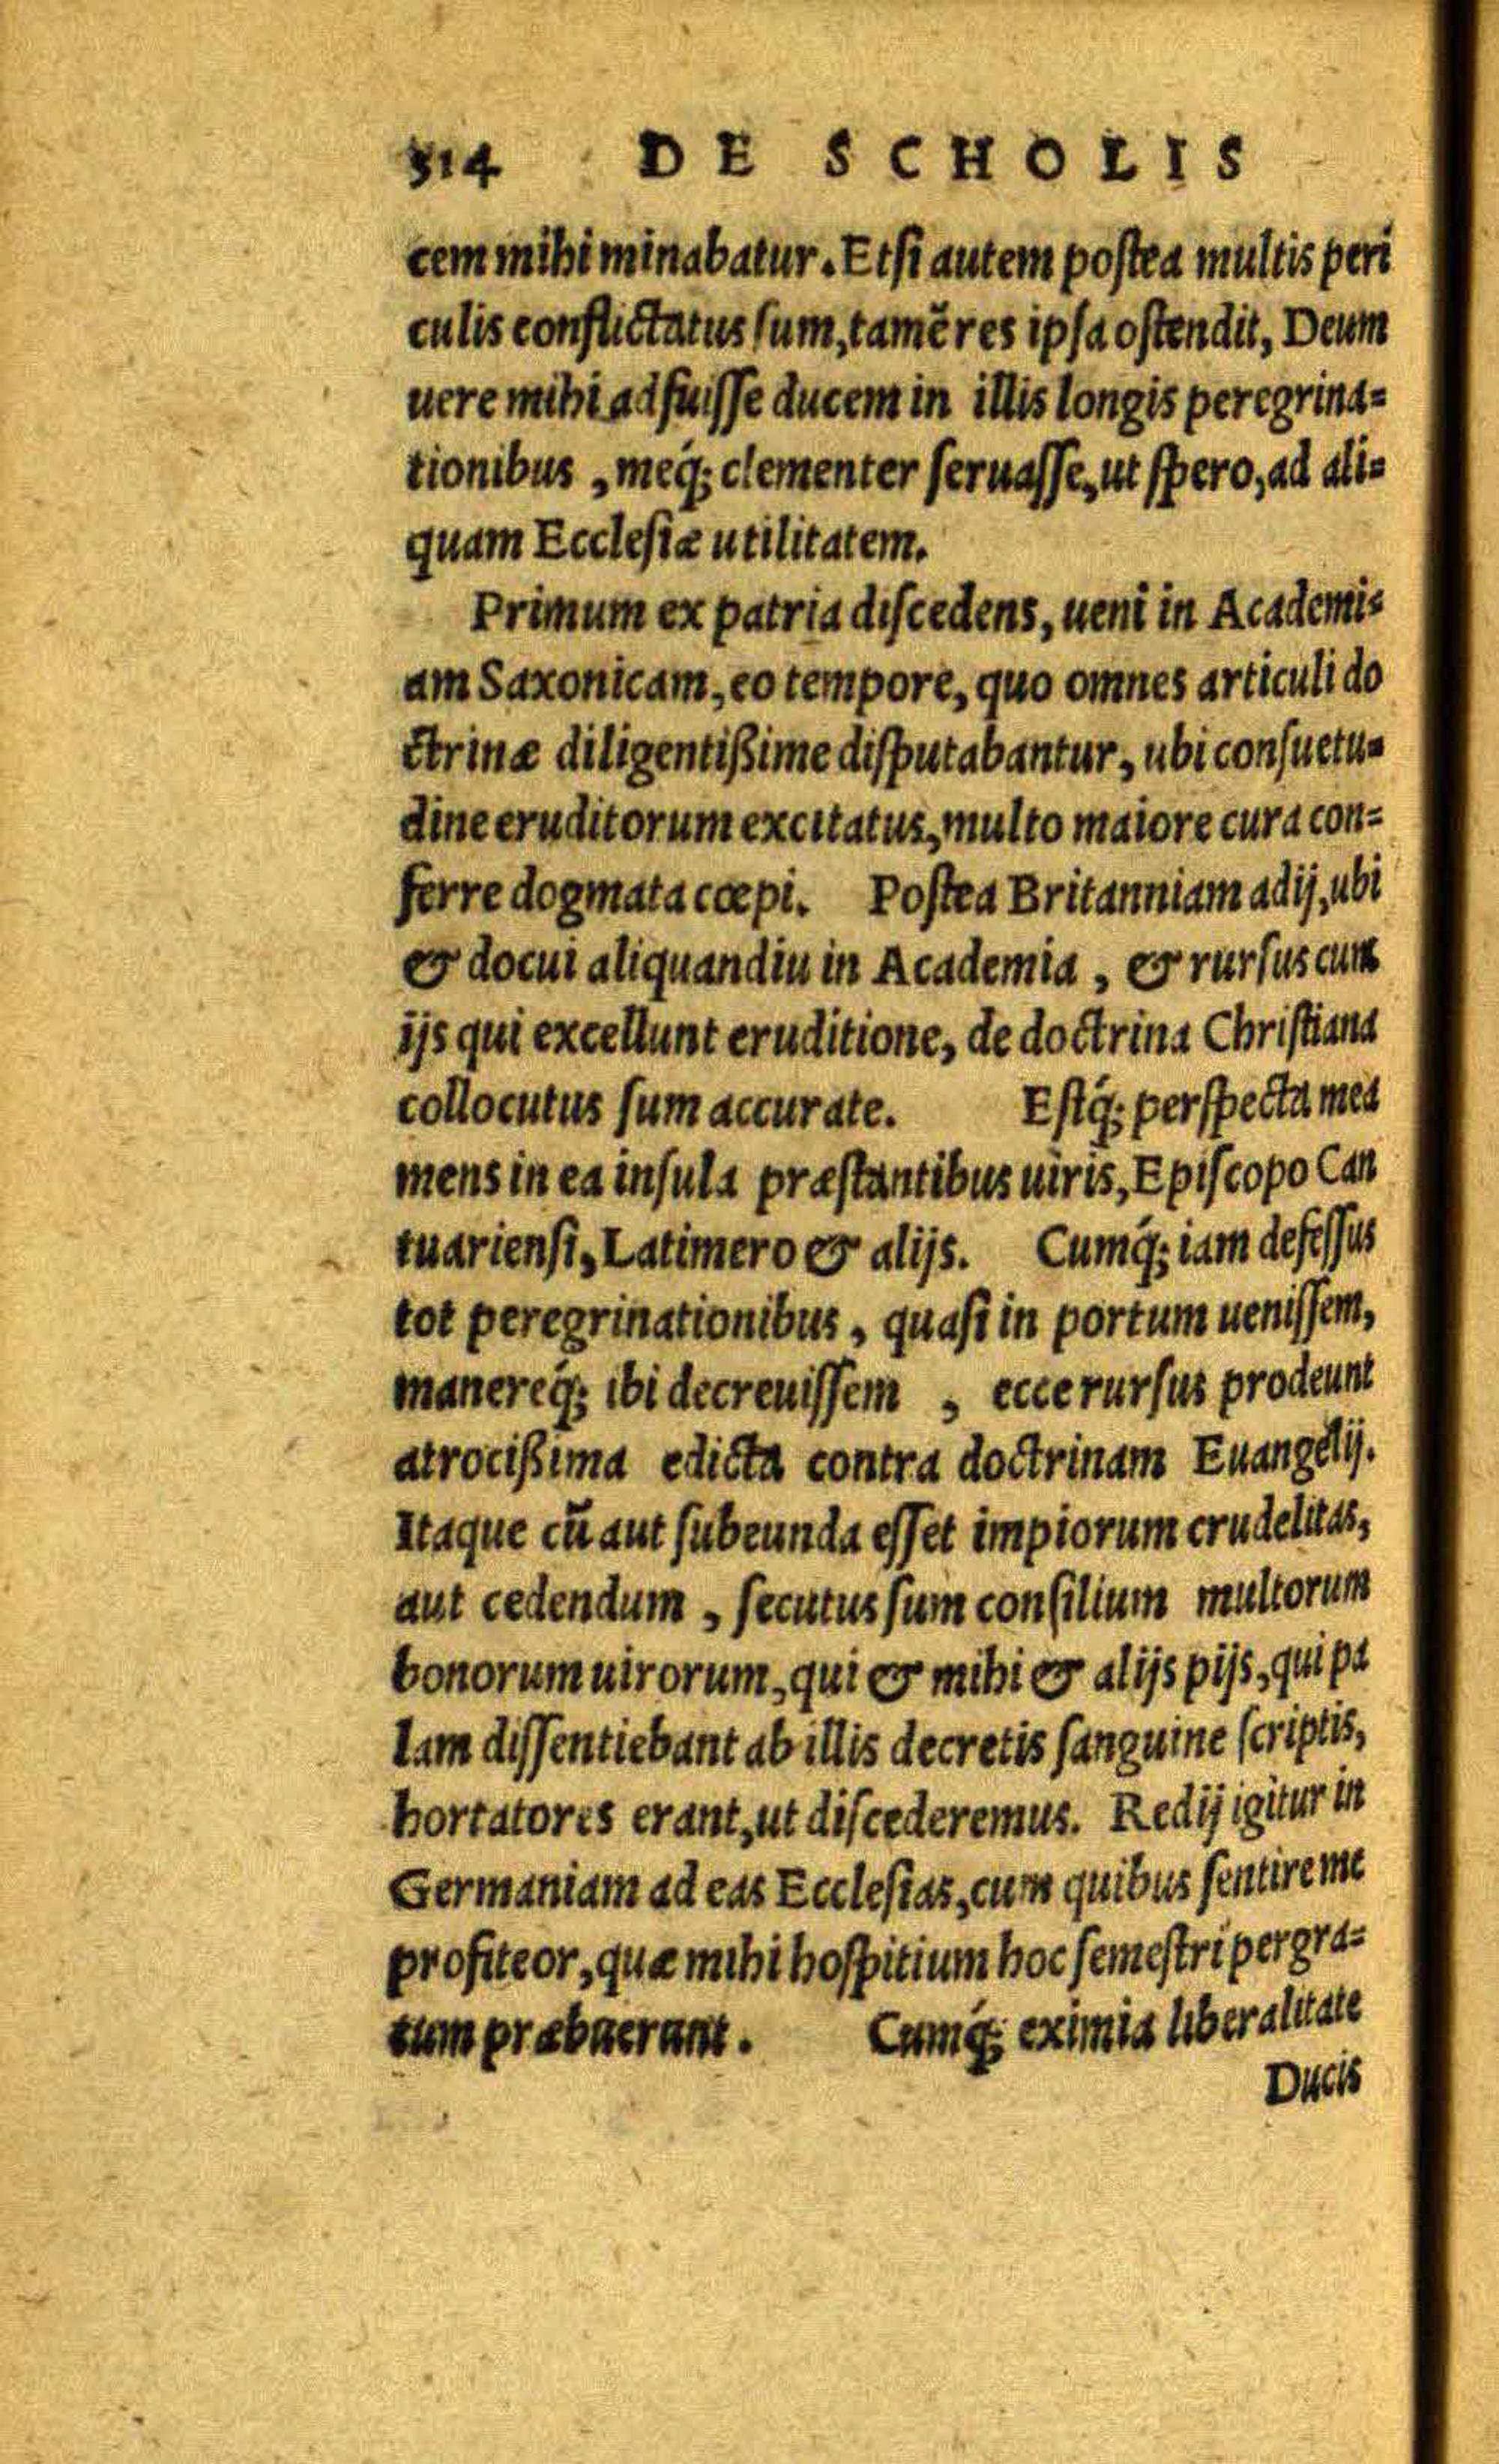 314 DE SCHOLIS
cem mihi minabatur. Etsi autem postea multis peri
culis conflictatus sum, tamẽ res ipsa ostendit, Deum
uere mihi adfuisse ducem in illis longis peregrina=
tionibus, meq́; clementer seruasse, ut spero, ad ali=
quam Ecclesiæ utilitatem.
Primum ex patria discedens, ueni in Academi=
am Saxonicam, eo tempore, quo omnes articuli do
ctrinæ diligentißime disputabantur, ubi consuetu=
dine eruditorum excitatus, multo maiore cura con=
ferre dogmata cœpi. Postea Britanniam adij, ubi
& docui aliquandiu in Academia, & rursus cum
ijs qui excellunt eruditione, de doctrina Christiana
collocutus sum accurate. Estq́; perspecta mea
mens in ea insula præstantibus uiris, Episcopo Can
tuariensi, Latimero & alijs. Cumq́; iam defessus
tot peregrinationibus, quasi in portum uenissem,
manereq́; ibi decreuissem, ecce rursus prodeunt
atrocißima edicta contra doctrinam Euangelij.
Itaque cũ aut subeunda esset impiorum crudelitas,
aut cedendum, secutus sum consilium multorum
bonorum uirorum, qui & mihi & alijs pijs, qui pa
lam dissentiebant ab illis decretis sanguine scriptis,
hortatores erant, ut discederemus. Redij igitur in
Germaniam ad eas Ecclesias, cum quibus sentire me
profiteor, quæ mihi hospitium hoc semestri pergra=
tum præbuerunt. Cumq́; eximia liberalitate
Ducis